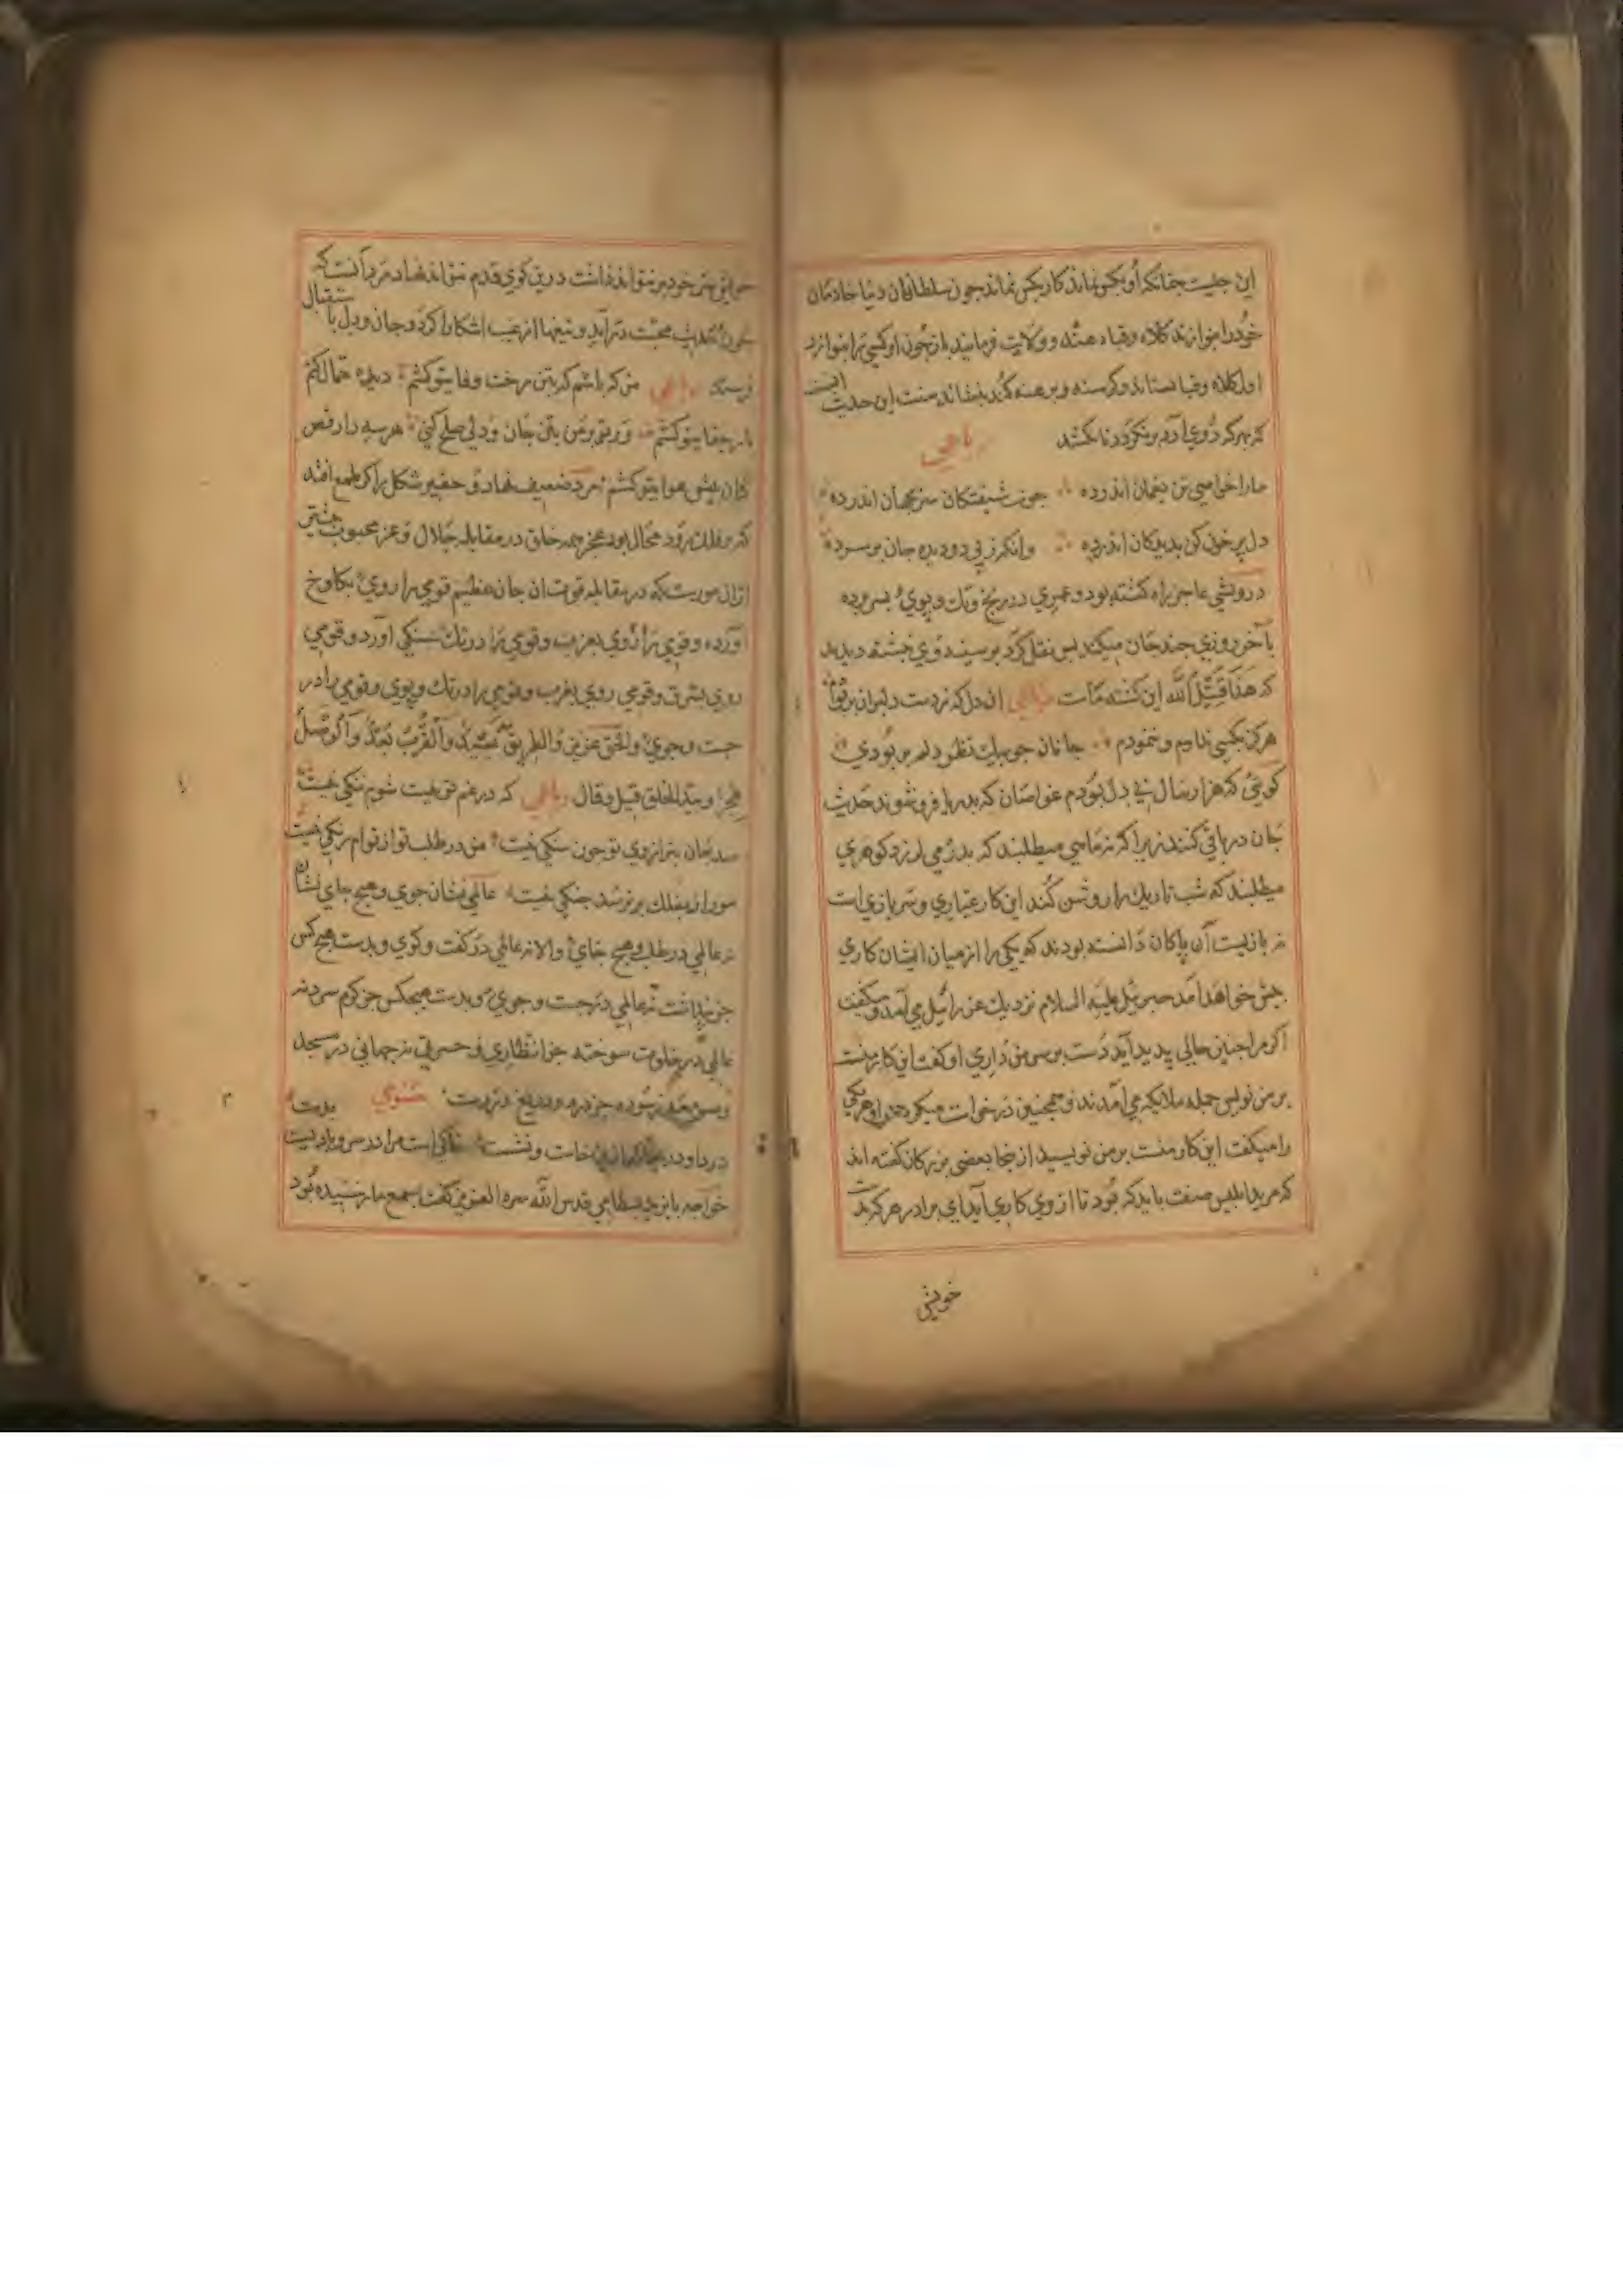 این حدیث چنانکه او بکس نماند کار بکس نماند چون سلطانان دنیا خادمان
خود را بنوازند کلاه و قباه دهند و ولایت فرمایند باز چون او کسی را بنوازد
اول کلاه و قبا بستاند و کرسنه و برهنه کند بنشاند صفت این حدیث
که بهر که روی آرد بر نکردد تا نکشد
رباعی
مارا خواهی تن بغمان اندرده جون شیفتکان سر بجهان اندرده
دل پر خون کن بدیدکان اندرده وانکه ز پی دو دیده جان بر سر ده
درویشی عاجز راه کشته بود و عمری در رنج و تک و پوی بسر برده
بآخر روزی چند جان میکند پس نقل کرد بر سینه وی نبشته دیدند
که هَذَا قَتِیلُ اللّه این کشته ماست رباعی ان دل که ز دست دلبران بربودم
هرکز بکسی ندادم و ننمودم جانان جو بیک نظر دلم بربودی
کوئی که هزار سال بی دل بودم غواصان که بدریا فروشوند حدیث
جان در باقی کنند زیرا که نه ماهی میطلبند که بدرمی ارزد کوهری
میطلبند که شب تاریک را روشن کند این کار عیاری و سربازی است
نه بازیست آن پاکان دانسته بودند که یکی را از میان ایشان کاری
پیش خواهد آمد جبرئیل علیه السلام نزدیک عزرائیل می آمد و میکفت
اکر مرا چنین حالی پدید آید دست بر سر من داری او کفت این کار منست
بر من نویس جمله ملایکه می آمدند و همچنین درخواست میکردند او هر یکی
را میکفت این کار منست بر من نویسید از ینجا بعضی بزرکان کفته اند
که مرید ابلیس صفت باید که بود تا از وی کاری آید ای برادر هر که بت
خویش
خویش خود بر نتواند داشت درین کوی قدم نتواند نهاد مرد آنست که
چون حدیث محبت درآید و تیغها از غیب اشکارا کرد و جان و دل باستقبال
فرستد رباعی من که باشم که بتن رخت وفا یتو کشم دیده حمال کنم
بار جفا یتو کشم ور بتو بر من بتن جان و دلی صلح کنی هر سه را رقص
کنان پیش هوا یتو کشم مرد ضعیف نهاد و حقیر شکل را که طمع افتد
که بر فلک رود محال بود عجز همه خلق در مقابله جلال و عز محبوب بیشتر
ازان مورست که در مقابله قوت ان جان عظیم قومی را روی بکلوخ
آورده و قومی را روی بعزیر و قومی را در تک سنکی آورد و قومی
روی بشرق و قومی روی بغرب و قومی را در تک و پوی و قومی را در
جست و جوی والحق عزیز والطریق بعید والقرب بُعدٌ والوصل
هجر و بید الخلق قیل و قال رباعی که در غم تو نیست شوم ننکی نیست
صد جان بترازوی تو جون سنکی نیست من در طلب تو از توام رنکی نیست
مور ار بفلک بر نرسد جنکی نیست عالمی نشان جوی و هیچ جای نشان
نه عالمی در طلب و هیچ جای والا نه عالمی در کفت و کوی و بدست هیچ کس
جز نداشت نه عالمی در جست و جوی و بدست هیچکس جز کرم سرد نه
عالمی در خلوت سوخته جز انتظاری و حسرتی نه جهانی در مسجد
مثنوی
درد او در جانم
خواجه بایزید بسطامی قدس الله سره العزیز کفت بسمع ما رسیده بود